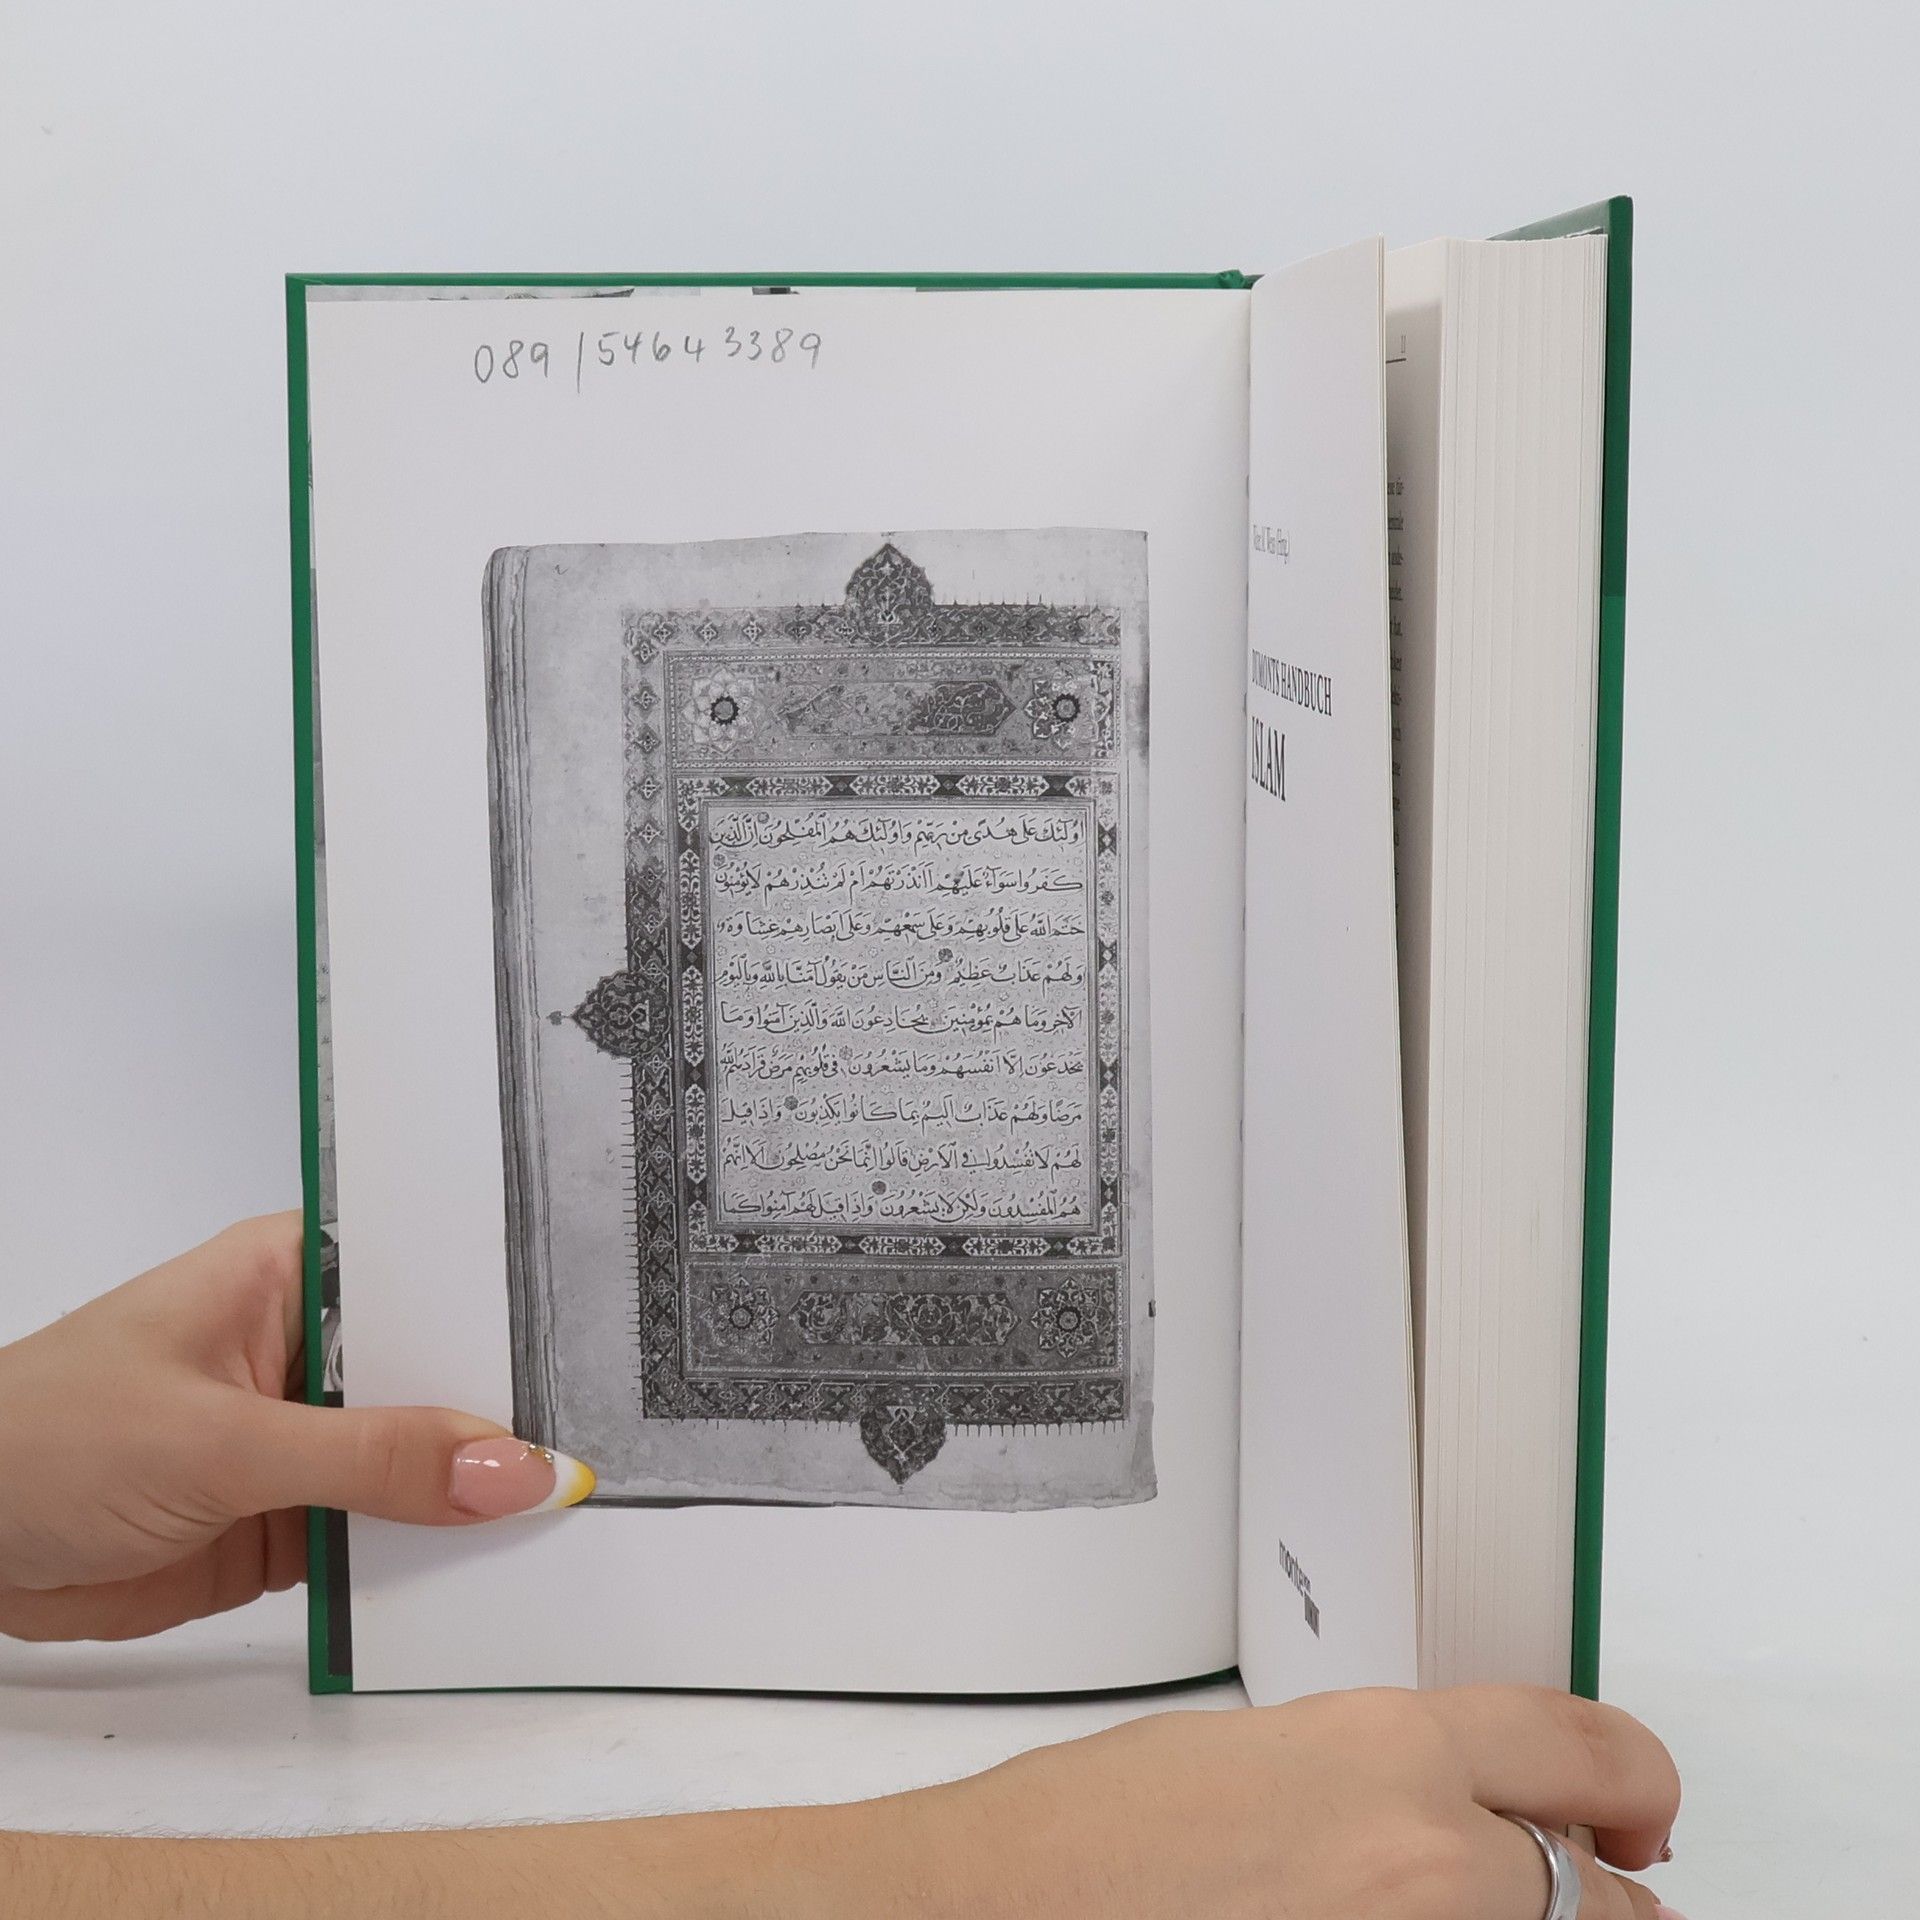 089/54643389
اُولٰٓئِكَ عَلٰى هُدًى مِنْ رَبِّهِمْ وَاُولٰٓئِكَ هُمُ الْمُفْلِحُونَ اِنَّ الَّذِينَ
كَفَرُوا سَوَآءٌ عَلَيْهِمْ ءَاَنْذَرْتَهُمْ اَمْ لَمْ تُنْذِرْهُمْ لَا يُؤْمِنُونَ
خَتَمَ اللّٰهُ عَلٰى قُلُوبِهِمْ وَعَلٰى سَمْعِهِمْ وَعَلٰى اَبْصَارِهِمْ غِشَاوَةٌ
وَلَهُمْ عَذَابٌ عَظِيمٌ وَمِنَ النَّاسِ مَنْ يَقُولُ آمَنَّا بِاللّٰهِ وَبِالْيَوْمِ
الْآخِرِ وَمَا هُمْ بِمُؤْمِنِينَ يُخَادِعُونَ اللّٰهَ وَالَّذِينَ آمَنُوا وَمَا
يَخْدَعُونَ اِلَّا اَنْفُسَهُمْ وَمَا يَشْعُرُونَ فِي قُلُوبِهِمْ مَرَضٌ فَزَادَهُمُ اللّٰهُ
مَرَضًا وَلَهُمْ عَذَابٌ اَلِيمٌ بِمَا كَانُوا يَكْذِبُونَ وَاِذَا قِيلَ
لَهُمْ لَا تُفْسِدُوا فِي الْاَرْضِ قَالُوا اِنَّمَا نَحْنُ مُصْلِحُونَ اَلَا اِنَّهُمْ
هُمُ الْمُفْسِدُونَ وَلٰكِنْ لَا يَشْعُرُونَ وَاِذَا قِيلَ لَهُمْ آمِنُوا كَمَا
(Hrsg.)
DUMONTS HANDBUCH
ISLAM
monte von
DUMONT
11